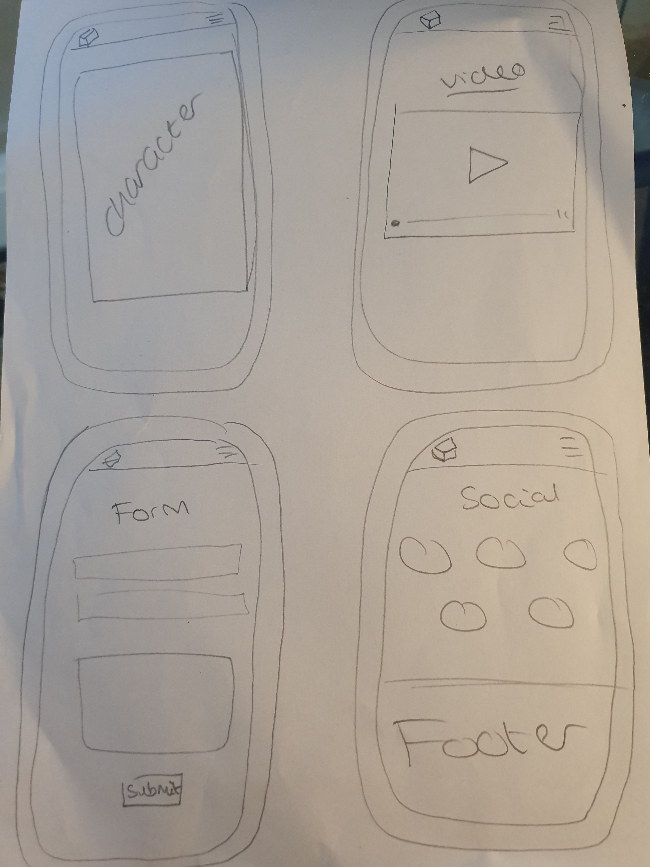 character
video
Form
Submit
Social
Footer